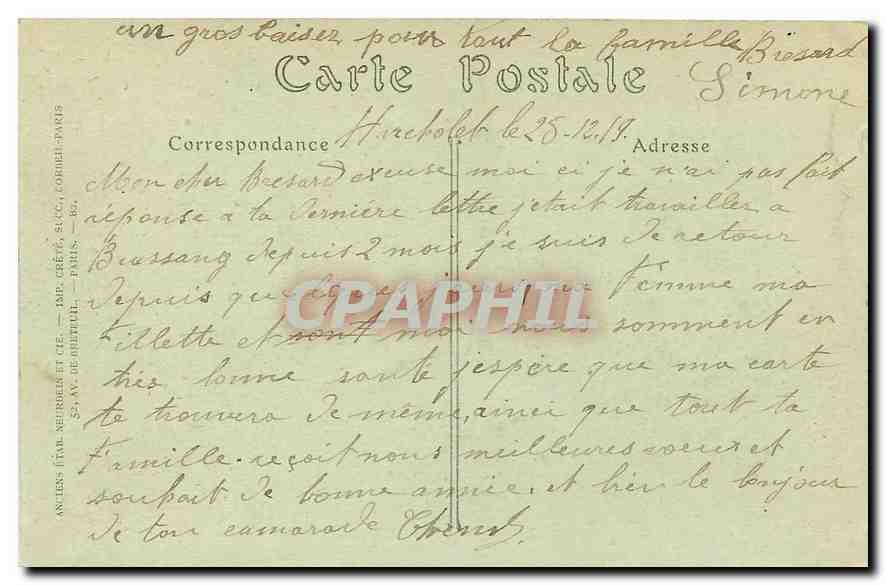 un gros baiser pour tout la famille Bresard
Simone
Carte Postale
Correspondance
Adresse
le 28-12.19.
Mon cher Bresard excuse moi ci je n'ai pas fait
réponse à ta dernière lettre j'etait travailler a
Bussang depuis 2 mois je suis de retour
depuis quelques jours, ma Femme ma
Fillette et sont moi nous somment en
très bonne santé j'espère que ma carte
te trouvera de même, ainci que tout ta
Famille reçoit nous meilleures voeux et
souhait de bonne année et bien le bonjour
de ton camarade
CPAPHIL
ANCIENS ÉTAB. NEURDEIN ET CIE. — IMP. CRÉTÉ, SUCC., CORBEIL-PARIS
52, AV. DE BRETEUIL. — PARIS. — Bo.